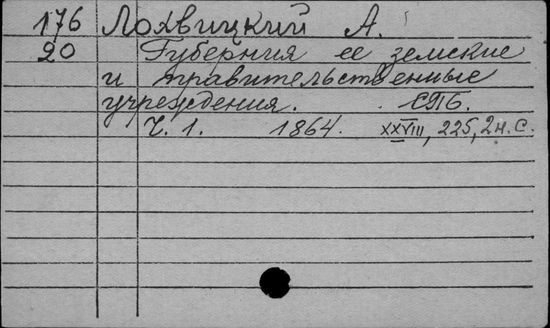 176 Лохвицкий А.
20 Губерния ее земские
и правительственные
учреждения. СПБ.
Ч. 1. 1864. XXVIII, 225, 2н.с.